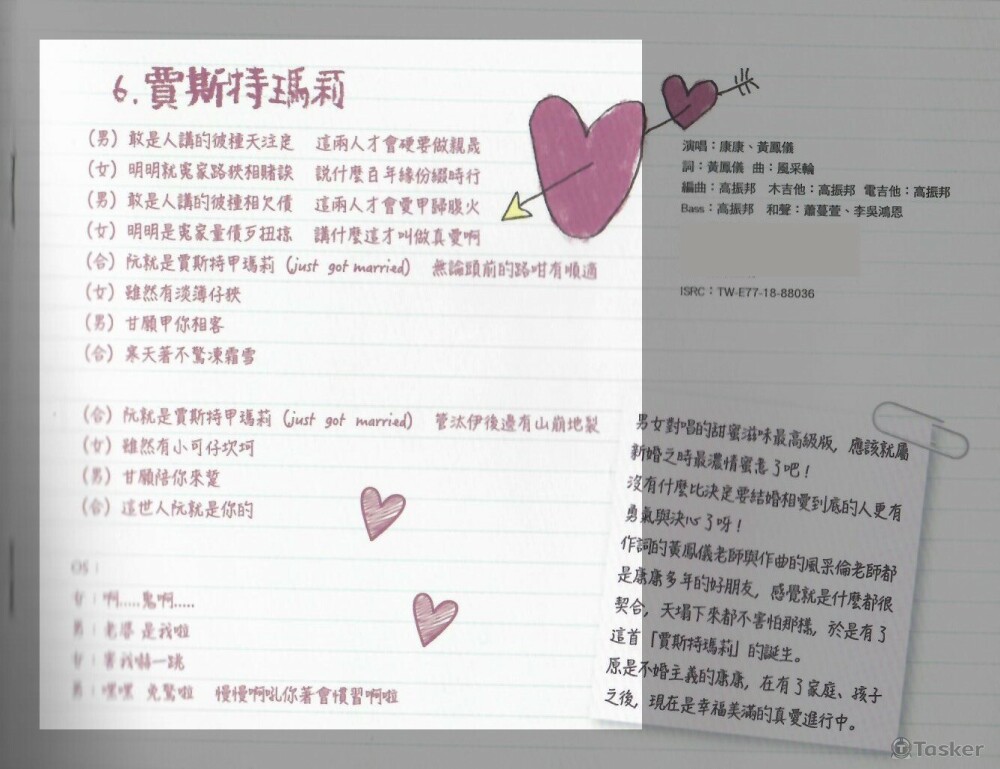 6.賈斯特瑪莉
(男) 敢是人講的彼種天注定 這兩人才會硬要做親晟
(女) 明明就冤家路狹相賭誒 説什麼百年緣份綴時行
(男) 敢是人講的彼種相欠債 這兩人才會愛甲歸腹火
(女) 明明是冤家量債歹扭掠 講什麼這才叫做真愛啊
(合) 阮就是賈斯特甲瑪莉 (just got married) 無論頭前的路咁有順適
(女) 雖然有淡薄仔狹
(男) 甘願甲你相容
(合) 寒天著不驚凍霜雪
(合) 阮就是賈斯特甲瑪莉 (just got married) 管汰伊後邊有山崩地裂
(女) 雖然有小可仔坎坷
(男) 甘願陪你來踅
(合) 這世人阮就是你的
OS:
女:啊.....鬼啊.....
男:老婆 是我啦
女:害我嚇一跳
男:嘿嘿 免驚啦 慢慢啊吼你著會慣習啊啦
演唱:康康、黃鳳儀
詞:黃鳳儀 曲:風采輪
編曲:高振邦 木吉他:高振邦 電吉他:高振邦
Bass:高振邦 和聲:蕭蔓萱、李吳鴻恩
ISRC:TW-E77-18-88036
男女對唱的甜蜜滋味最高級版,應該就屬
新婚之時最濃情蜜意了吧!
沒有什麼比決定要結婚相愛到底的人更有
勇氣與決心了呀!
作詞的黃鳳儀老師與作曲的風采倫老師都
是康康多年的好朋友,感覺就是什麼都很
契合,天塌下來都不害怕那樣,於是有了
這首「賈斯特瑪莉」的誕生。
原是不婚主義的康康,在有了家庭、孩子
之後,現在是幸福美滿的真愛進行中。
Tasker